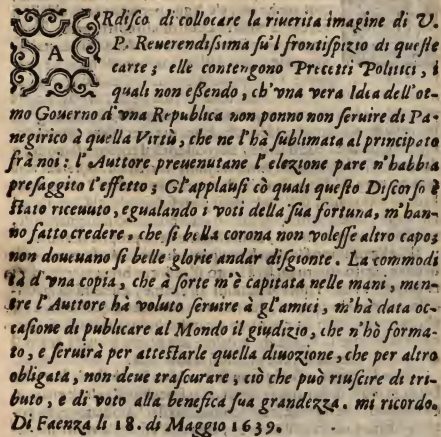 ARdisco di collocare la riuerita imagine di V.
P. Reuerendissima sù'l frontispizio di queste
carte; elle contengono Precetti Politici, i
quali non essendo, ch'vna vera Idia dell'ot-
mo Gouerno d'vna Republica non ponno non seruire di Pa-
negirico à quella Virtù, che ne l'hà sublimata al principato
frà noi: l'Auttore preuenutane l'elezione pare n'habbia
presaggito l'effetto; Gl'applausi cò quali questo Discorso è
stato riceuuto, egualando i voti della sua fortuna, m'han-
no fatto credere, che sì bella corona non volesse altro capo;
non doueuano sì belle glorie andar disgionte. La commodi
tà d'vna copia, che à sorte m'è capitata nelle mani, men-
tre l'Auttore hà voluto seruire à gl'amici, m'hà data oc-
casione di publicare al Mondo il giudizio, che n'hò forma-
to, e seruirà per attestarle quella diuozione, che per altro
obligata, non deue trascurare, ciò che può riuscire di tri-
buto, e di voto alla benefica sua grandezza. mi ricordo.
Di Faenza li 18. di Maggio 1639.